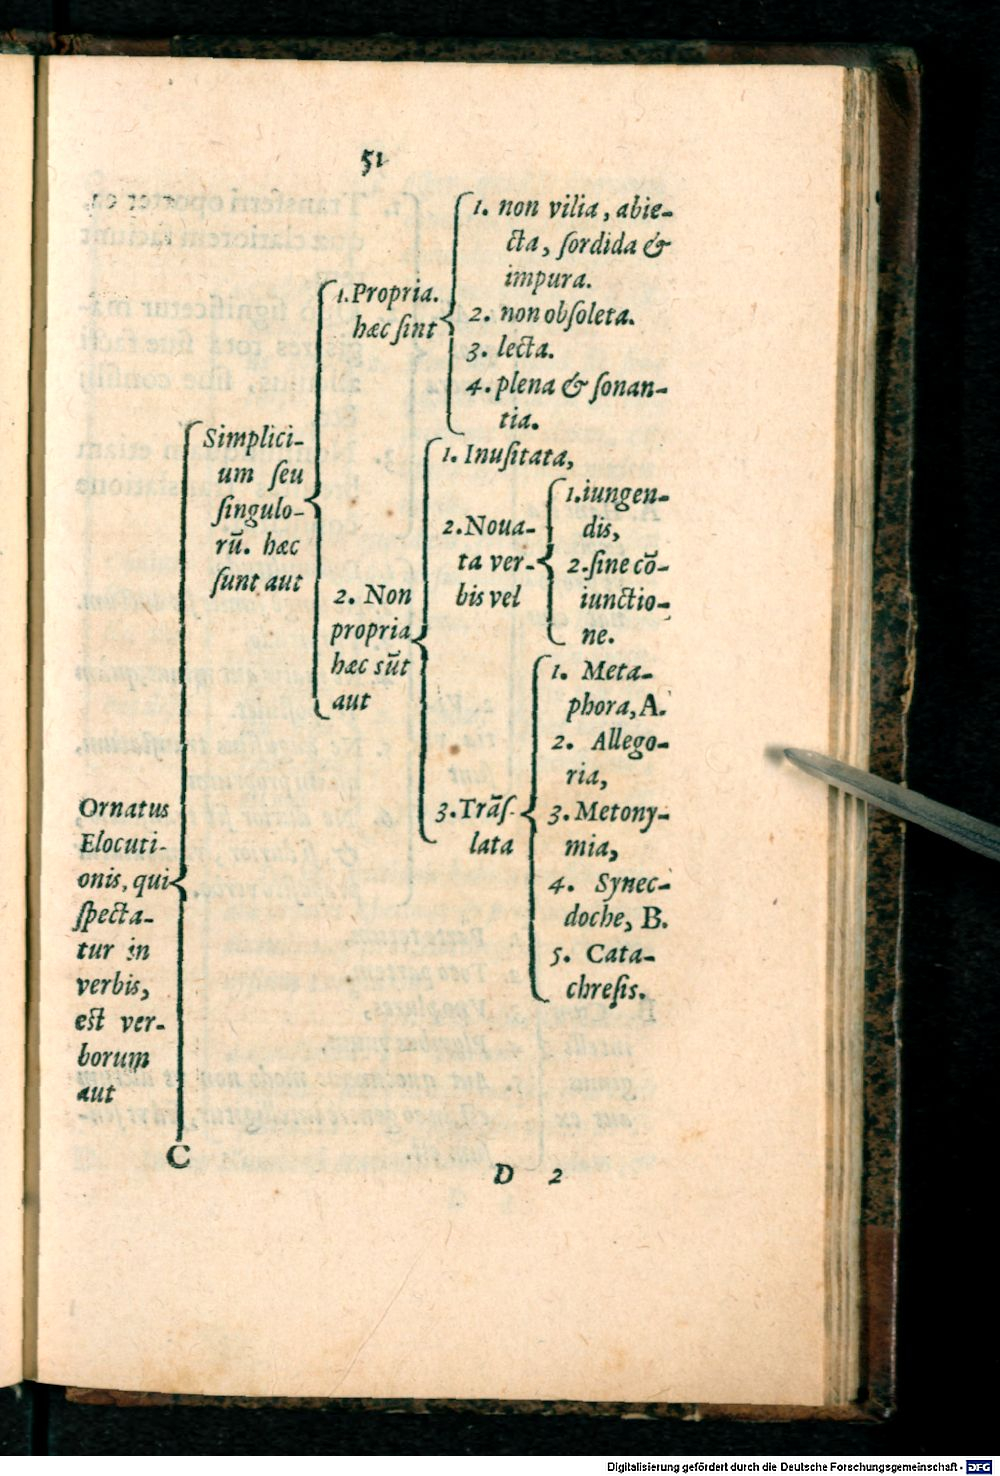 51
Ornatus
Elocuti-
onis, qui
ſpecta-
tur in
verbis,
eſt ver-
borum
aut
Simplici-
um ſeu
ſingulo-
rū. hæc
ſunt aut
1. Propria.
hæc ſint
1. non vilia, abie-
cta, ſordida &
impura.
2. non obſoleta.
3. lecta.
4. plena & ſonan-
tia.
2. Non
propria
hæc sūt
aut
1. Inuſitata,
2. Noua-
ta ver-
bis vel
1. iungen-
dis,
2. ſine cō-
iunctio-
ne.
3. Trāſ-
lata
1. Meta-
phora, A.
2. Allego-
ria,
3. Metony-
mia,
4. Synec-
doche, B.
5. Cata-
chreſis.
C
D 2
Digitalisierung gefördert durch die Deutsche Forschungsgemeinschaft - DFG